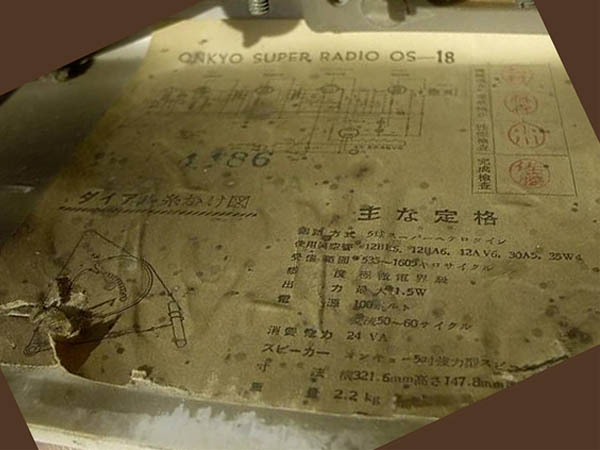 ONKYO SUPER RADIO OS-18
性能検査
完成検査
1186
ダイアル糸かけ図
主な定格
回路方式 5球スーパーヘテロダイン
使用真空管 12BE5, 12BA6, 12AV6, 30A5, 35W4
受信範囲 535~1605キロサイクル
感度 極微電界級
出力 最大1.5W
電源 100ボルト
交流50~60サイクル
消費電力 24 VA
スピーカー オンキョー5吋強力型スピ
寸法 横321.6mm高さ147.8mm
重量 2.2 kg